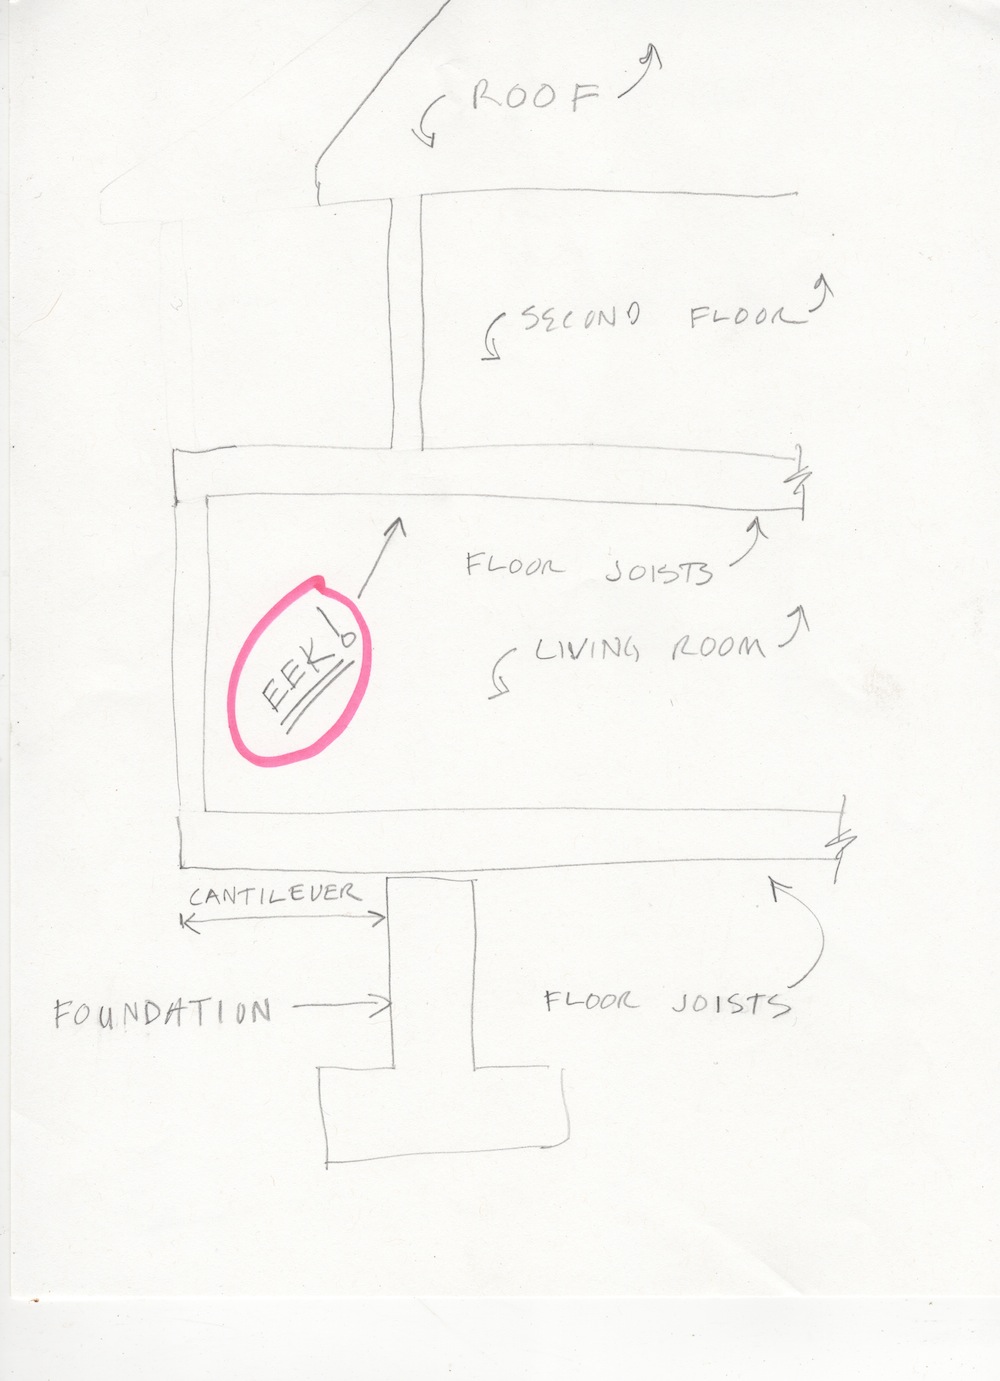 ROOF
SECOND FLOOR
FLOOR JOISTS
LIVING ROOM
EEK!
CANTILEVER
FOUNDATION
FLOOR JOISTS